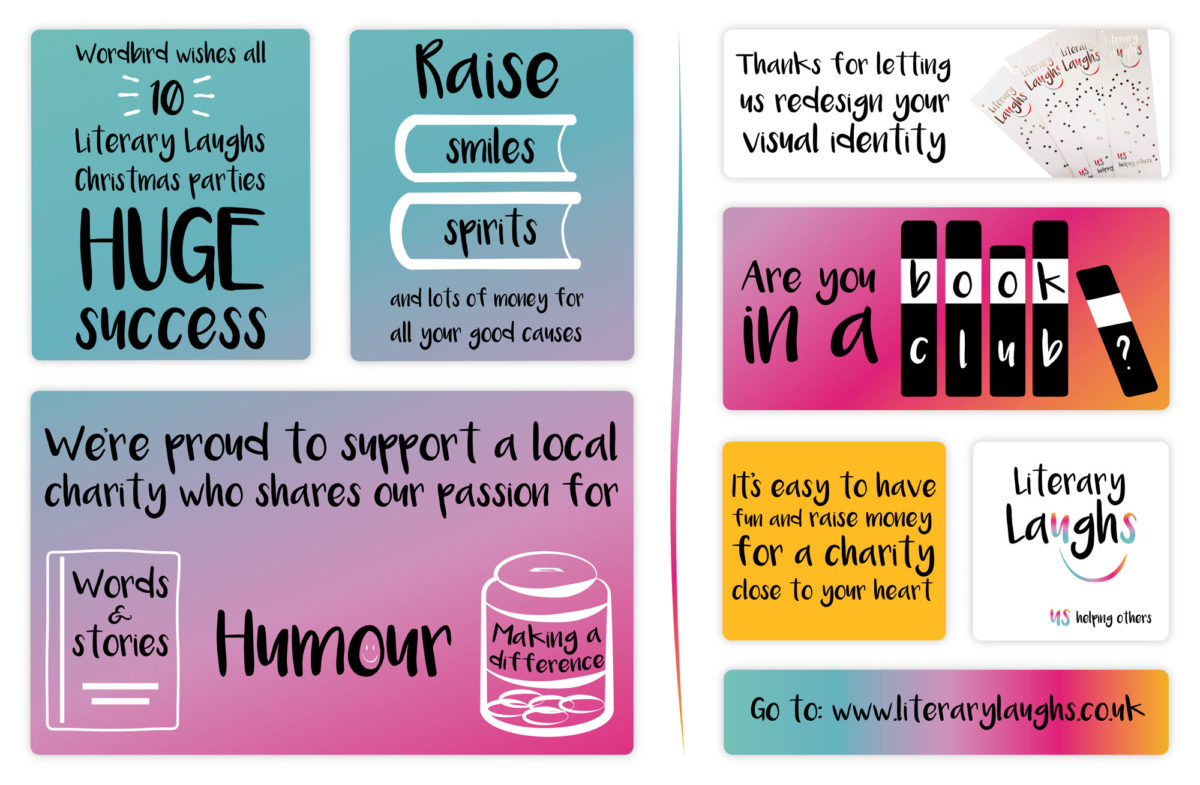 Wordbird wishes all
10
Literary Laughs
Christmas parties
HUGE
success
Raise
smiles
spirits
and lots of money for
all your good causes
We're proud to support a local
charity who shares our passion for
Words
&
stories
Humour
Making a
difference
Thanks for letting
us redesign your
visual identity
Literary
Laughs
Literary
Laughs
Literary
Laughs
Literary
us
helping
us
helping others
Are you
in a
book
club?
It's easy to have
fun and raise money
for a charity
close to your heart
Literary
Laughs
us helping others
Go to: www.literarylaughs.co.uk